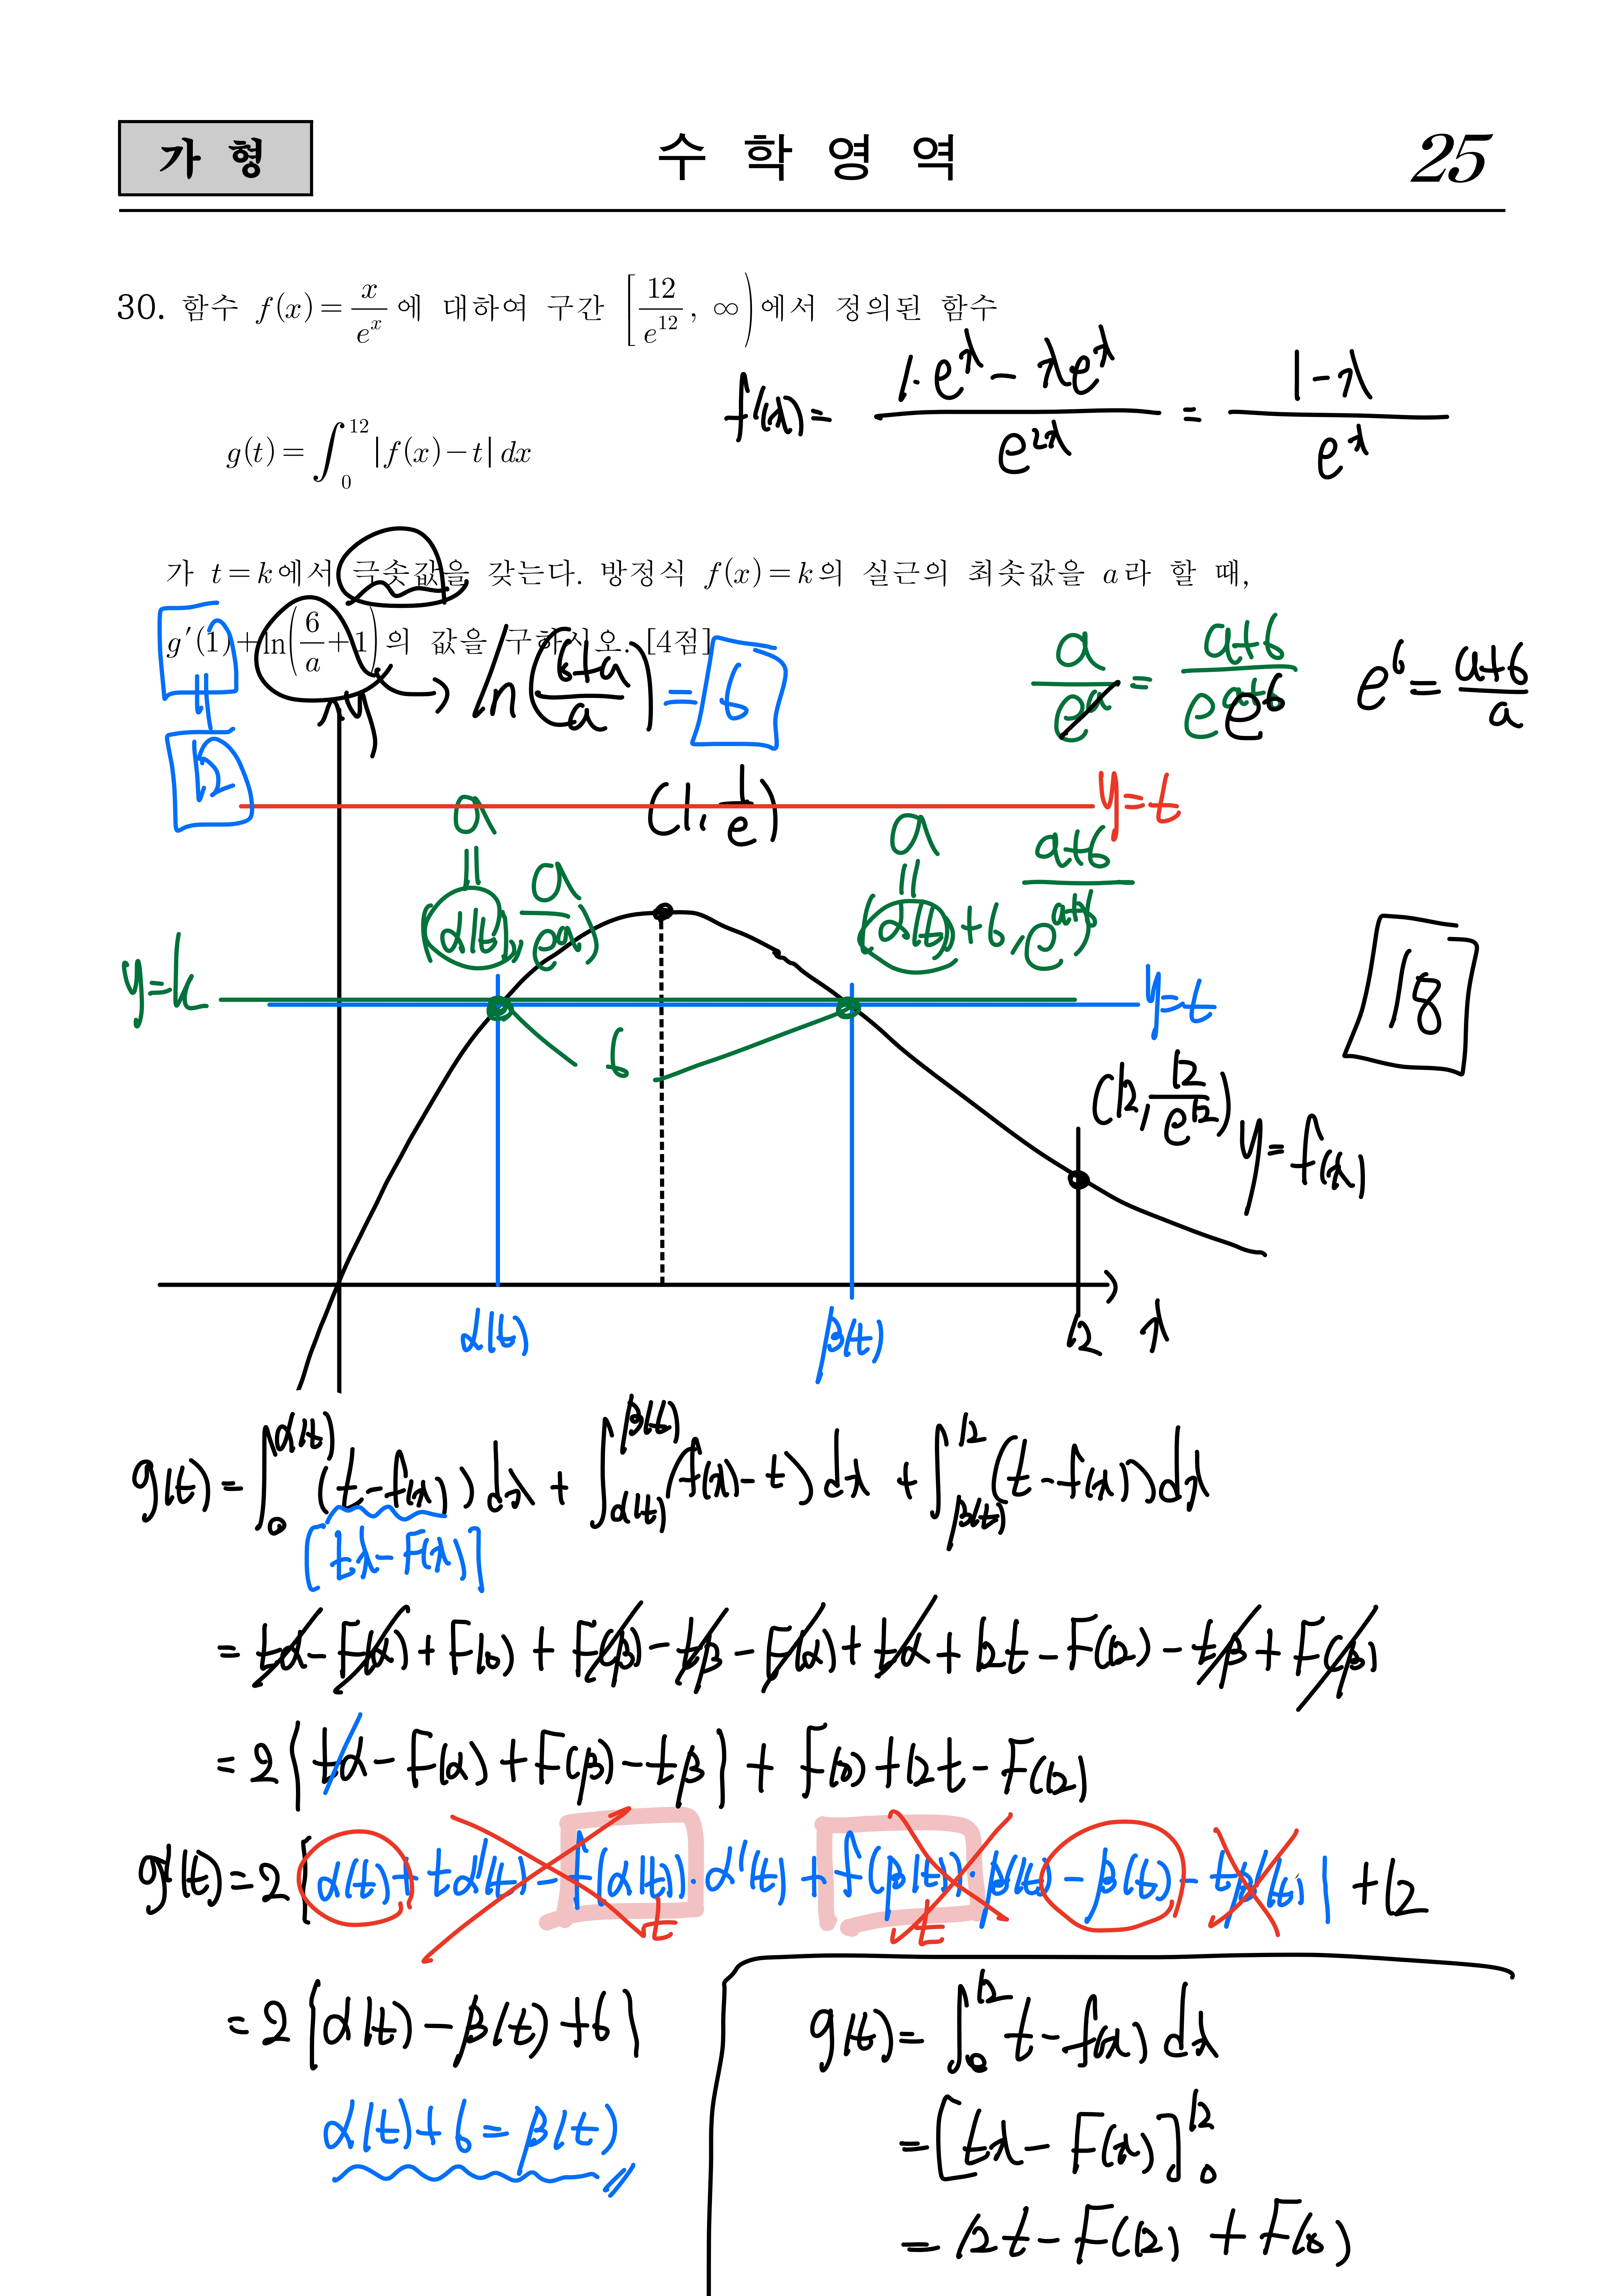 가 형
수 학 영 역
25
30. 함수 f(x) = x/e^x 에 대하여 구간 [12/e^12, ∞) 에서 정의된 함수
f'(x) = (1·e^x − xe^x)/e^{2x} = (1−x)/e^x
g(t) = ∫_0^12 |f(x)−t| dx
가 t=k에서 극솟값을 갖는다. 방정식 f(x)=k의 실근의 최솟값을 a라 할 때,
g′(1)+ln(6/a+1)의 값을 구하시오. [4점]
ln((6+a)/a) = 6
a/e^a = (a+6)/(e^{a+6}) e^6
e^6 = (a+6)/a
12
y=t
(1, 1/e)
a
=
(α(t), a/e^a)
a
=
(α(t)+6, (a+6)/e^{a+6})
y=k
y=t
18
6
(12, 12/e^12)
y=f(x)
α(t)
β(t)
12
x
g(t) = ∫_0^{α(t)} (t−f(x)) dx + ∫_{α(t)}^{β(t)} (f(x)−t) dx + ∫_{β(t)}^{12} (t−f(x)) dx
[tx−F(x)]
= tα−F(α)+F(0)+F(β)−tβ−F(α)+tα+12t−F(12)−tβ+F(β)
= 2{tα−F(α)+F(β)−tβ}+F(0)+12t−F(12)
g'(t)=2{α(t)+tα'(t)−f(α(t))·α'(t)+f(β(t))·β'(t)−β(t)−tβ'(t)}+12
t
t
= 2{α(t)−β(t)+6}
α(t)+6=β(t)
g(t)= ∫_0^12 t−f(x) dx
= [tx−F(x)]_0^12
= 12t−F(12)+F(0)